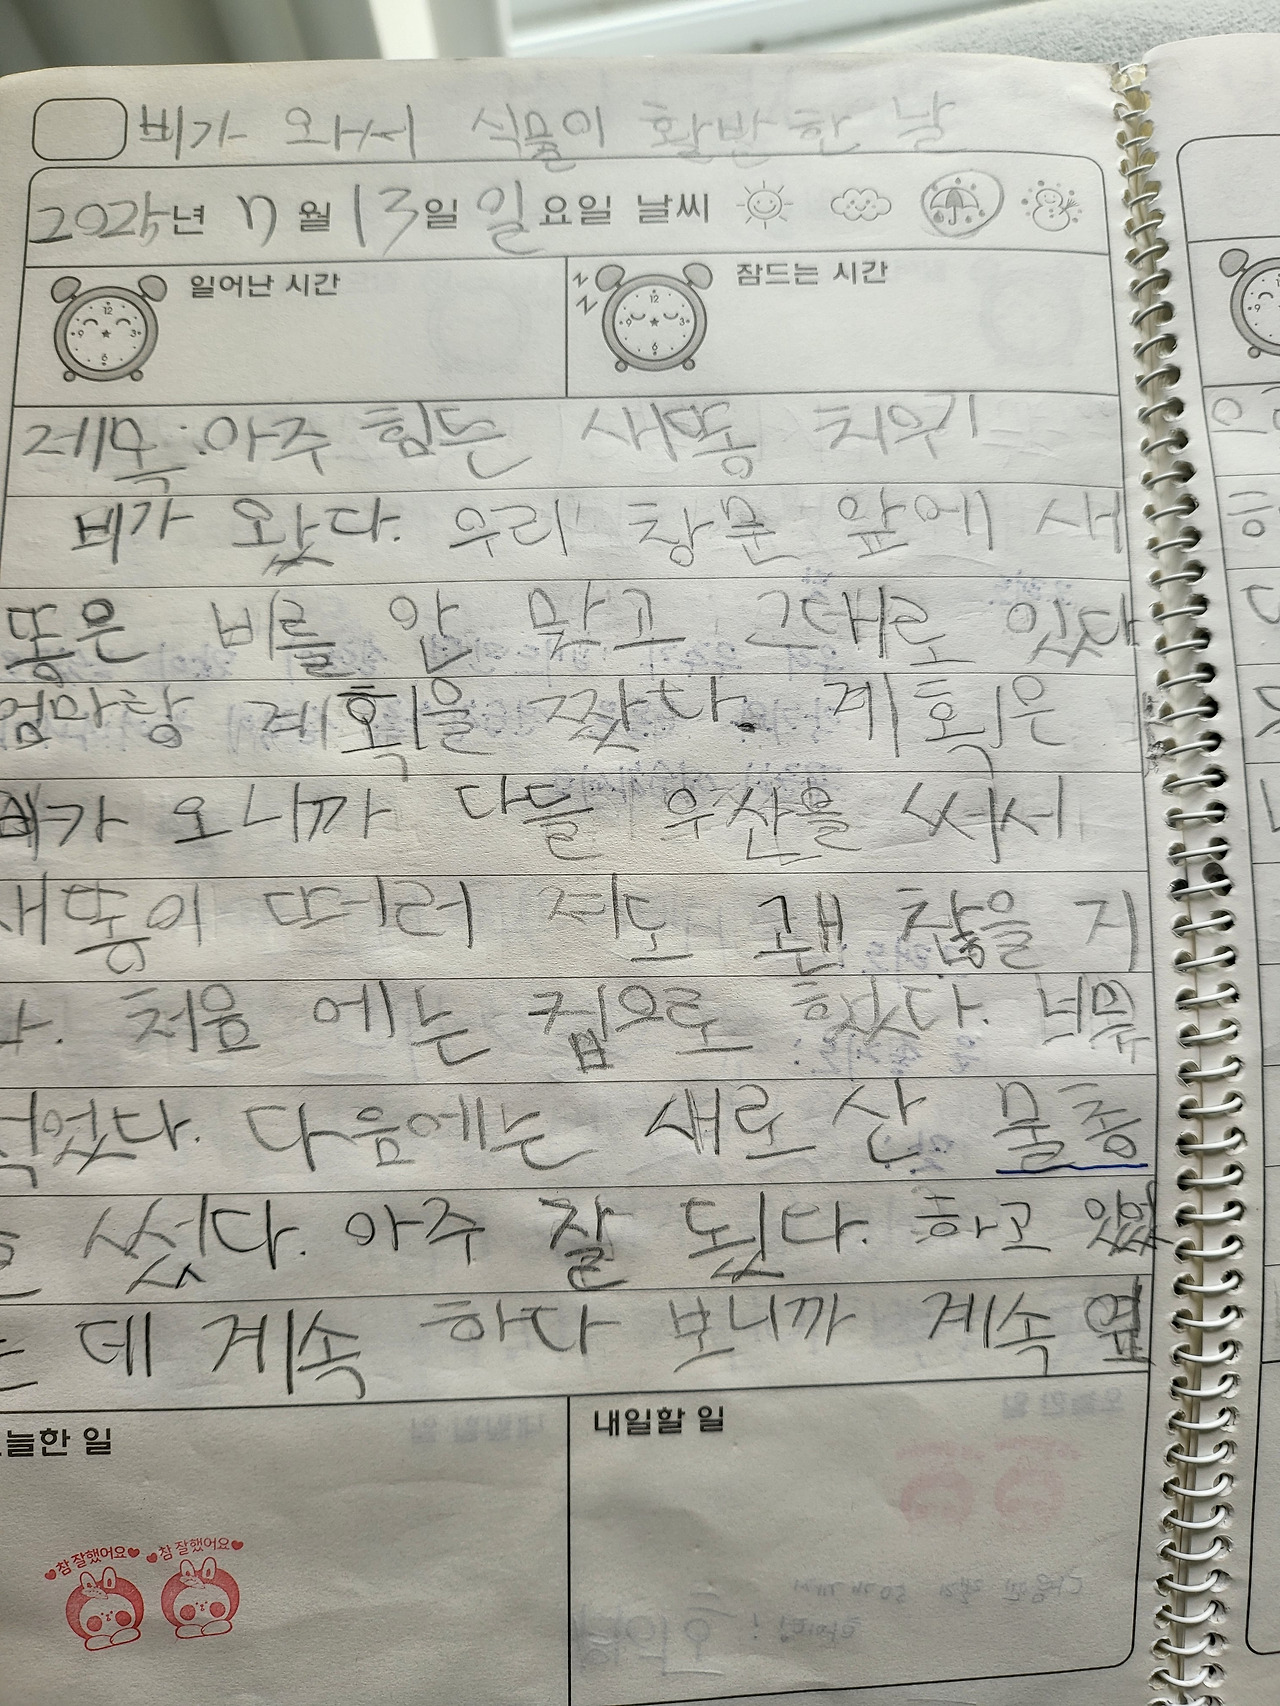 비가 와서 식물이 활반한 날
2025년 7월 13일 일요일 날씨
일어난 시간 잠드는 시간
제목: 아주 힘든 새똥 치우기
비가 왔다. 우리 창문 앞에 새
똥은 비를 안 맞고 그대로 있다
엄마랑 계획을 짰다. 계획은
비가 오니까 다들 우산을 써서
새똥이 떠러 져도 괜 찮을 지
다. 처음 에는 집으로 했다. 너무
적었다. 다음에는 새로 산 물총
을 썼다. 아주 잘 됬다. 하고 있었
는 데 계속 하다 보니까 계속 옆
오늘한 일 내일할 일
참 잘했어요 참 잘했어요